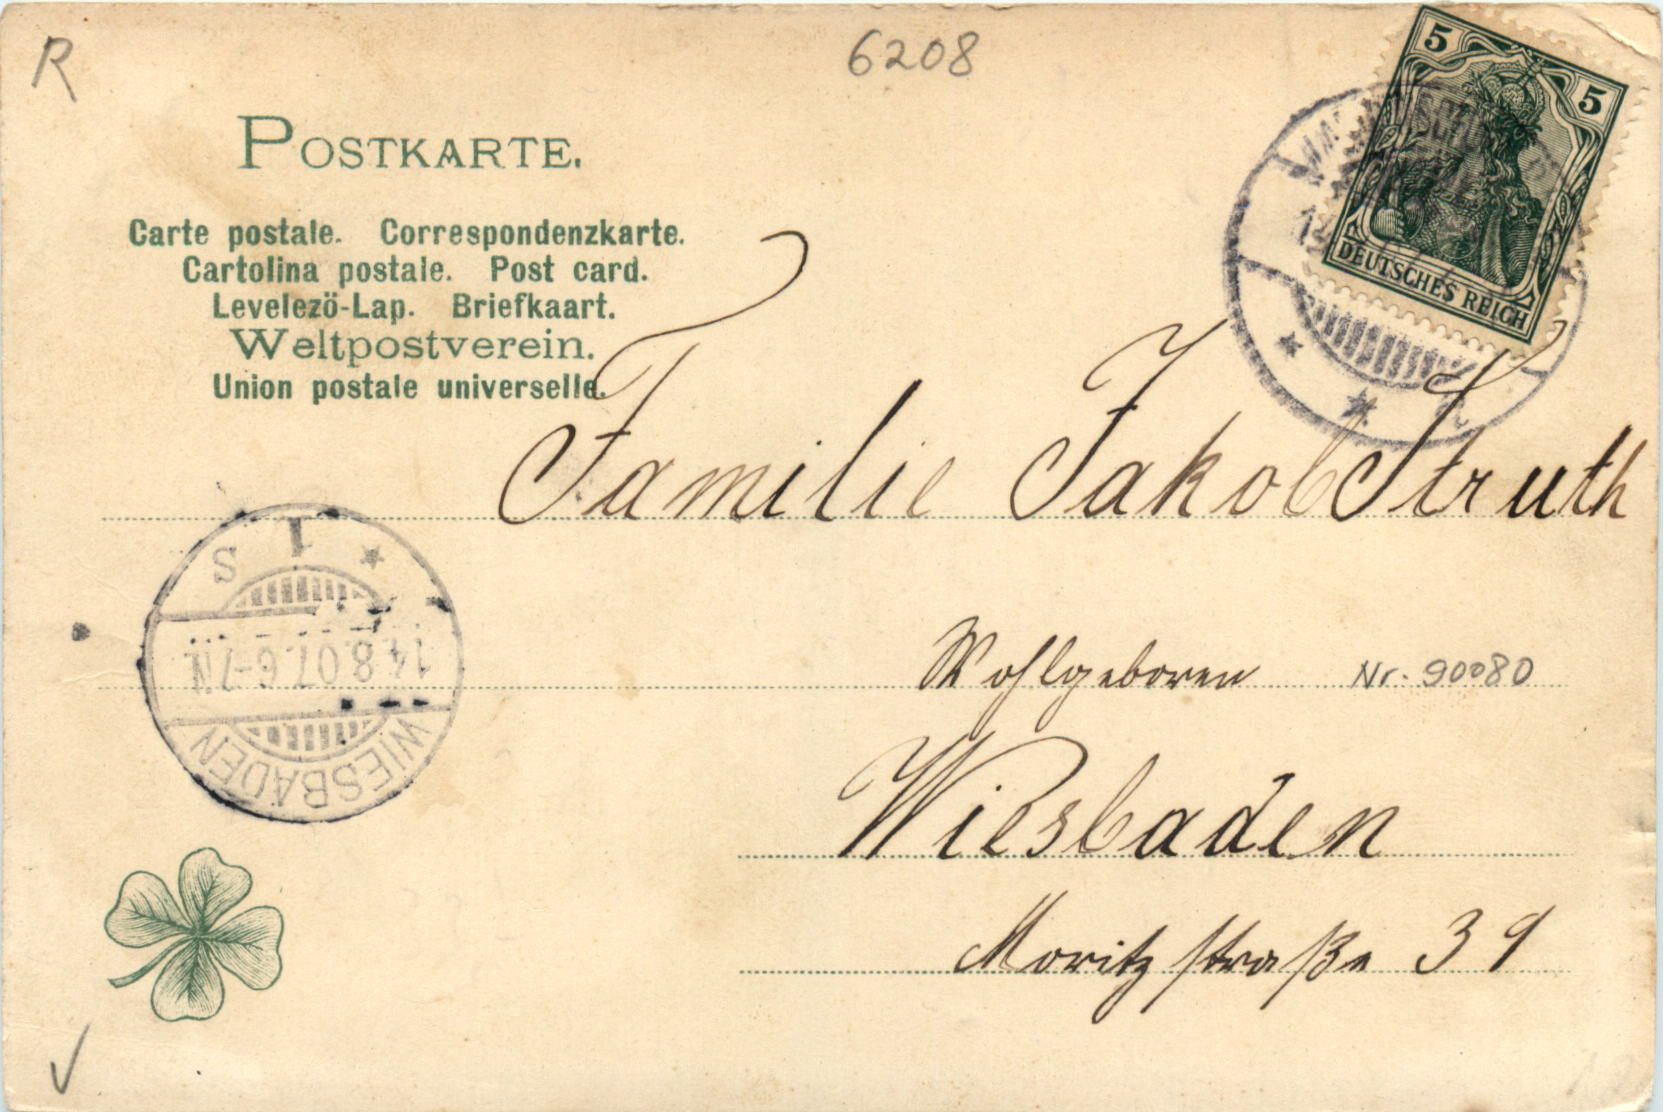 R
6208
POSTKARTE.
Carte postale. Correspondenzkarte.
Cartolina postale. Post card.
Levelezö-Lap. Briefkaart.
Weltpostverein.
Union postale universelle.
5 5
DEUTSCHES REICH
Familie Jakob Struth
Wohlgeboren Nr. 90080
Wiesbaden
Moritzstraße 39
WIESBADEN
14.8.07.6-7N.
1 S